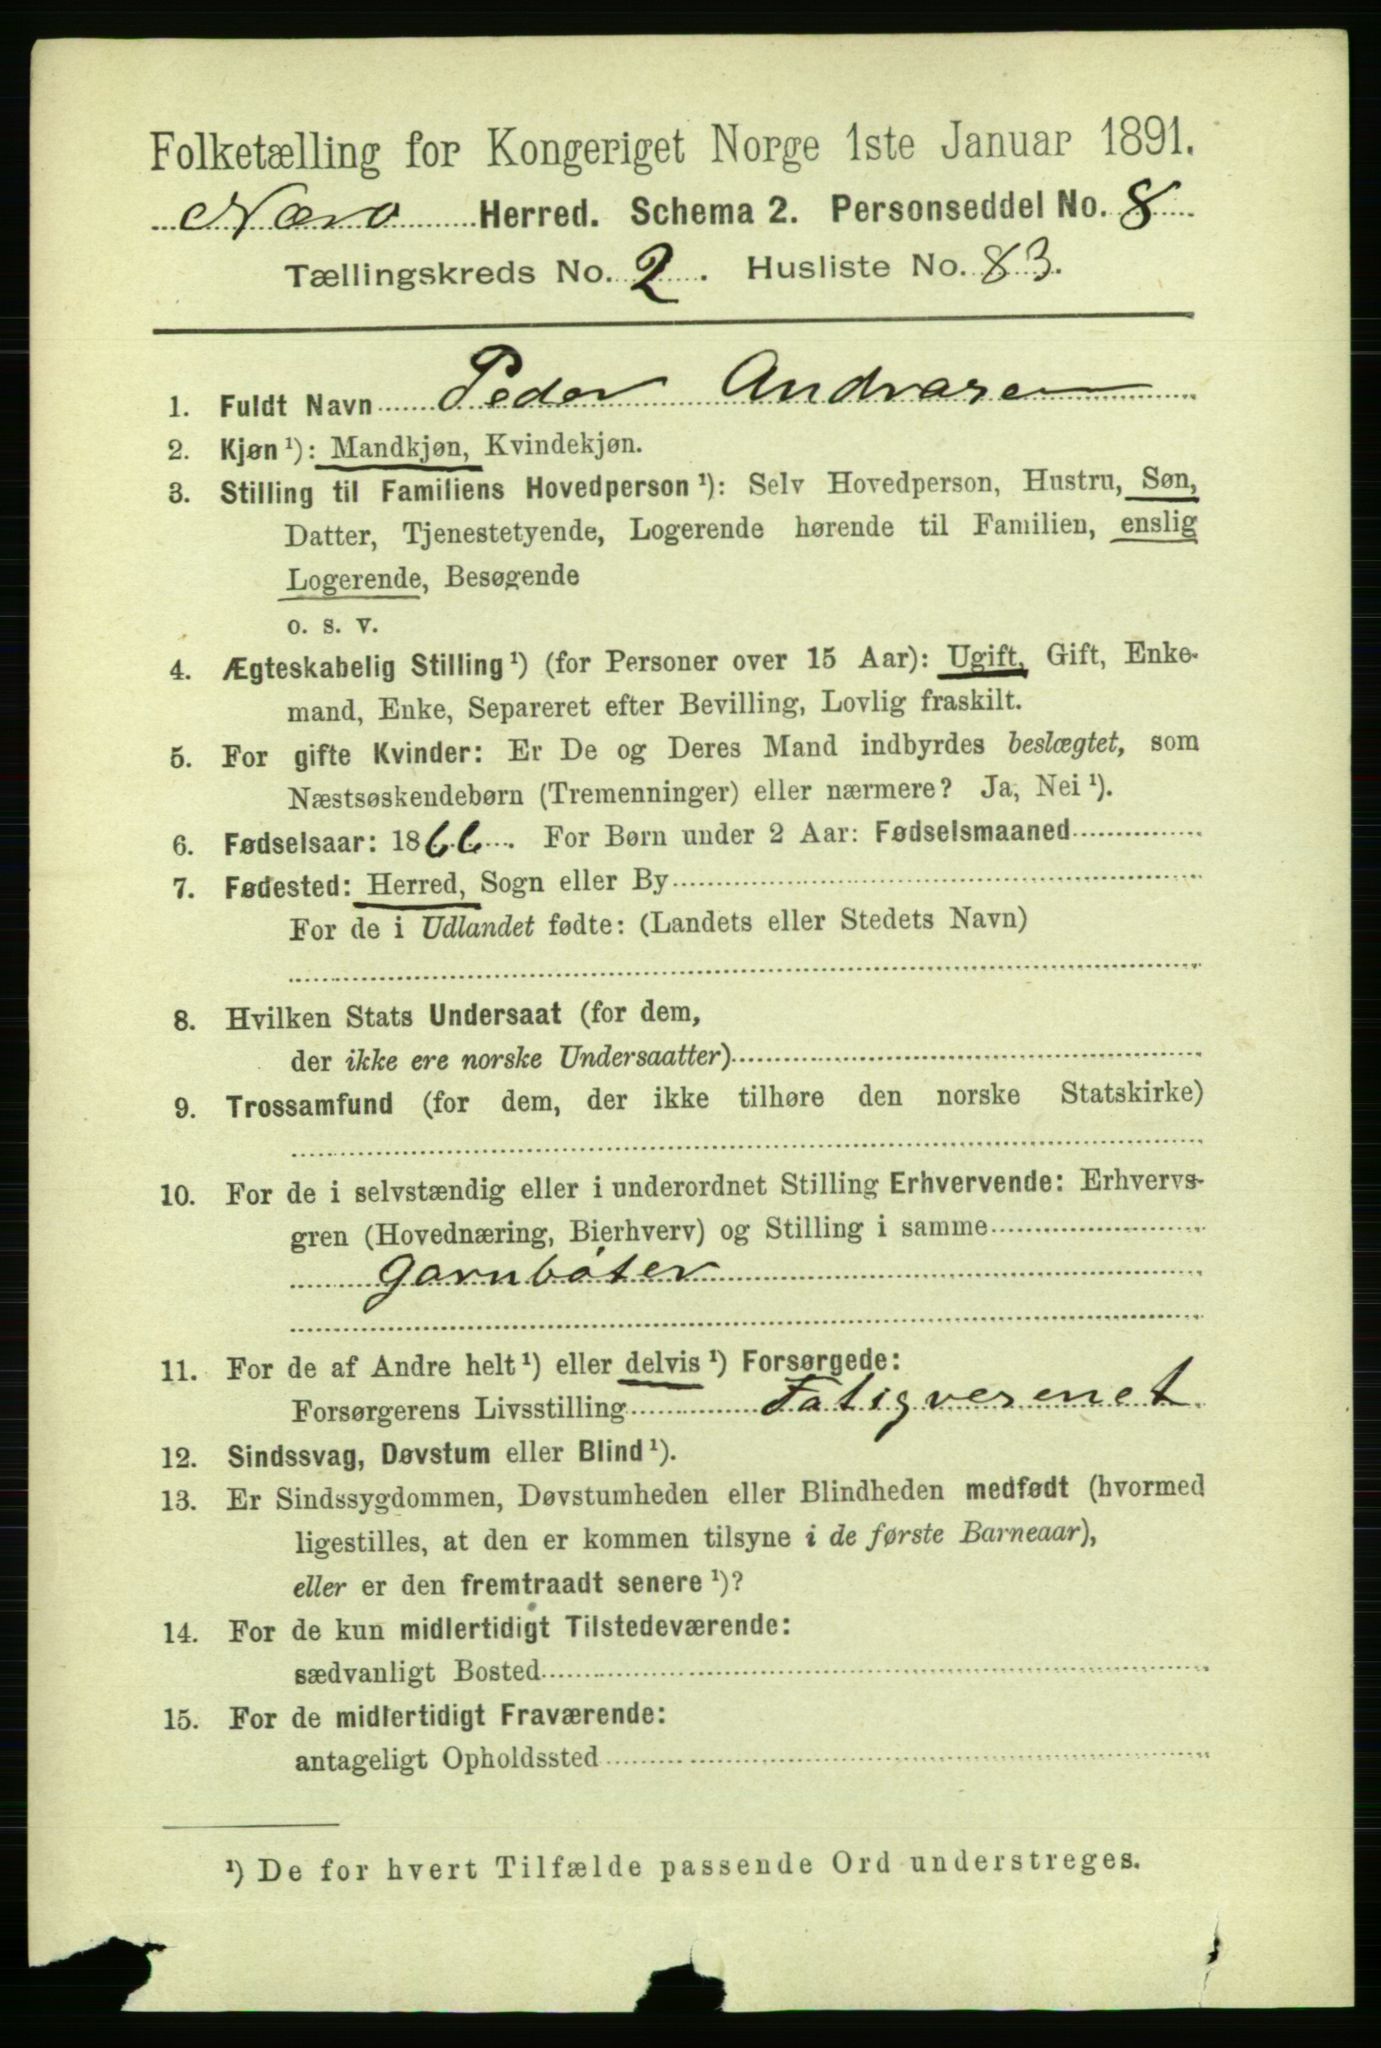 Folketælling for Kongeriget Norge 1ste Januar 1891.
Nærø Herred. Schema 2. Personseddel No. 8
Tællingskreds No. 2. Husliste No. 83.
1. Fuldt Navn Peder Andrasen
2. Kjøn ¹): Mandkjøn, Kvindekjøn.
3. Stilling til Familiens Hovedperson ¹): Selv Hovedperson, Hustru, Søn,
Datter, Tjenestetyende, Logerende hørende til Familien, enslig
Logerende, Besøgende
o. s. v.
4. Ægteskabelig Stilling ¹) (for Personer over 15 Aar): Ugift, Gift, Enke-
mand, Enke, Separeret efter Bevilling, Lovlig fraskilt.
5. For gifte Kvinder: Er De og Deres Mand indbyrdes beslægtet, som
Næstsøskendebørn (Tremenninger) eller nærmere? Ja, Nei ¹).
6. Fødselsaar: 1866. For Børn under 2 Aar: Fødselsmaaned
7. Fødested: Herred, Sogn eller By
For de i Udlandet fødte: (Landets eller Stedets Navn)
8. Hvilken Stats Undersaat (for dem,
der ikke ere norske Undersaatter)
9. Trossamfund (for dem, der ikke tilhøre den norske Statskirke)
10. For de i selvstændig eller i underordnet Stilling Erhvervende: Erhvervs-
gren (Hovednæring, Bierhverv) og Stilling i samme
Garnbøter
11. For de af Andre helt ¹) eller delvis ¹) Forsørgede:
Forsørgerens Livsstilling Fatigvesenet
12. Sindssvag, Døvstum eller Blind ¹).
13. Er Sindssygdommen, Døvstumheden eller Blindheden medfødt (hvormed
ligestilles, at den er kommen tilsyne i de første Barneaar),
eller er den fremtraadt senere ¹)?
14. For de kun midlertidigt Tilstedeværende:
sædvanligt Bosted
15. For de midlertidigt Fraværende:
antageligt Opholdssted
¹) De for hvert Tilfælde passende Ord understreges.